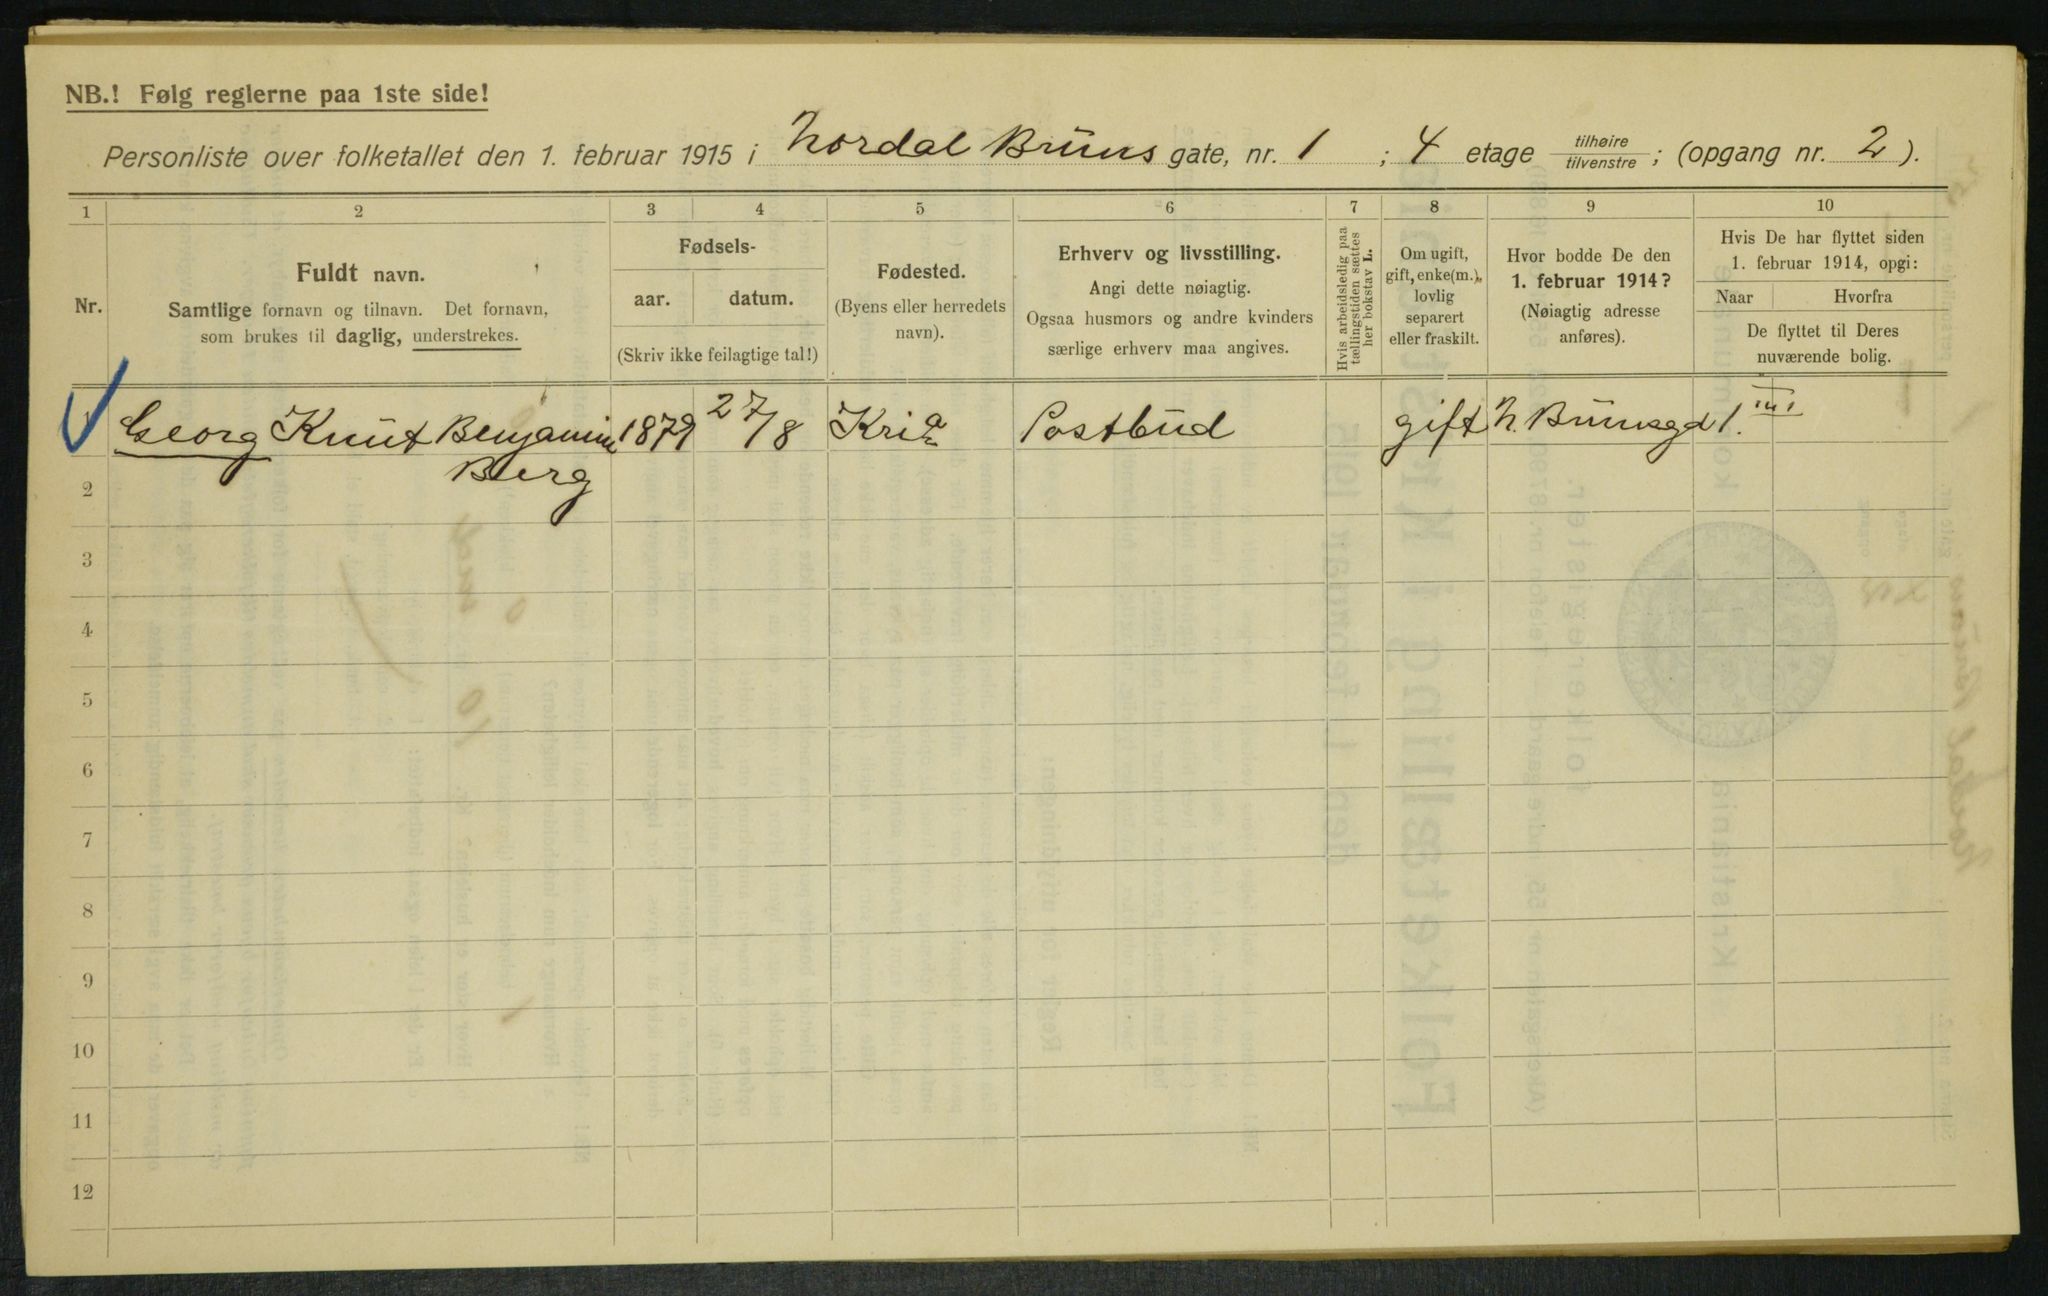 NB.! Følg reglerne paa 1ste side!
Personliste over folketallet den 1. februar 1915 i Nordal Bruns gate, nr. 1 ; 4 etage tilhøire/tilvenstre ; (opgang nr. 2 ).
1 2 3 4 5 6 7 8 9 10
Nr.
Fuldt navn.
Samtlige fornavn og tilnavn. Det fornavn,
som brukes til daglig, understrekes.
Fødsels-
aar. datum.
(Skriv ikke feilagtige tal!)
Fødested.
(Byens eller herredets
navn).
Erhverv og livsstilling.
Angi dette nøiagtig.
Ogsaa husmors og andre kvinders
særlige erhverv maa angives.
Hvis arbeidsledig paa
tællingstiden sættes
her bokstav L.
Om ugift,
gift, enke(m.),
lovlig
separert
eller fraskilt.
Hvor bodde De den
1. februar 1914?
(Nøiagtig adresse
anføres).
Hvis De har flyttet siden
1. februar 1914, opgi:
Naar Hvorfra
De flyttet til Deres
nuværende bolig.
Georg Knut Benjamin 1879 27/8 Kria Postbud gift N. Brunsgd 1. III
Berg
2
3
4
5
6
7
8
9
10
11
12